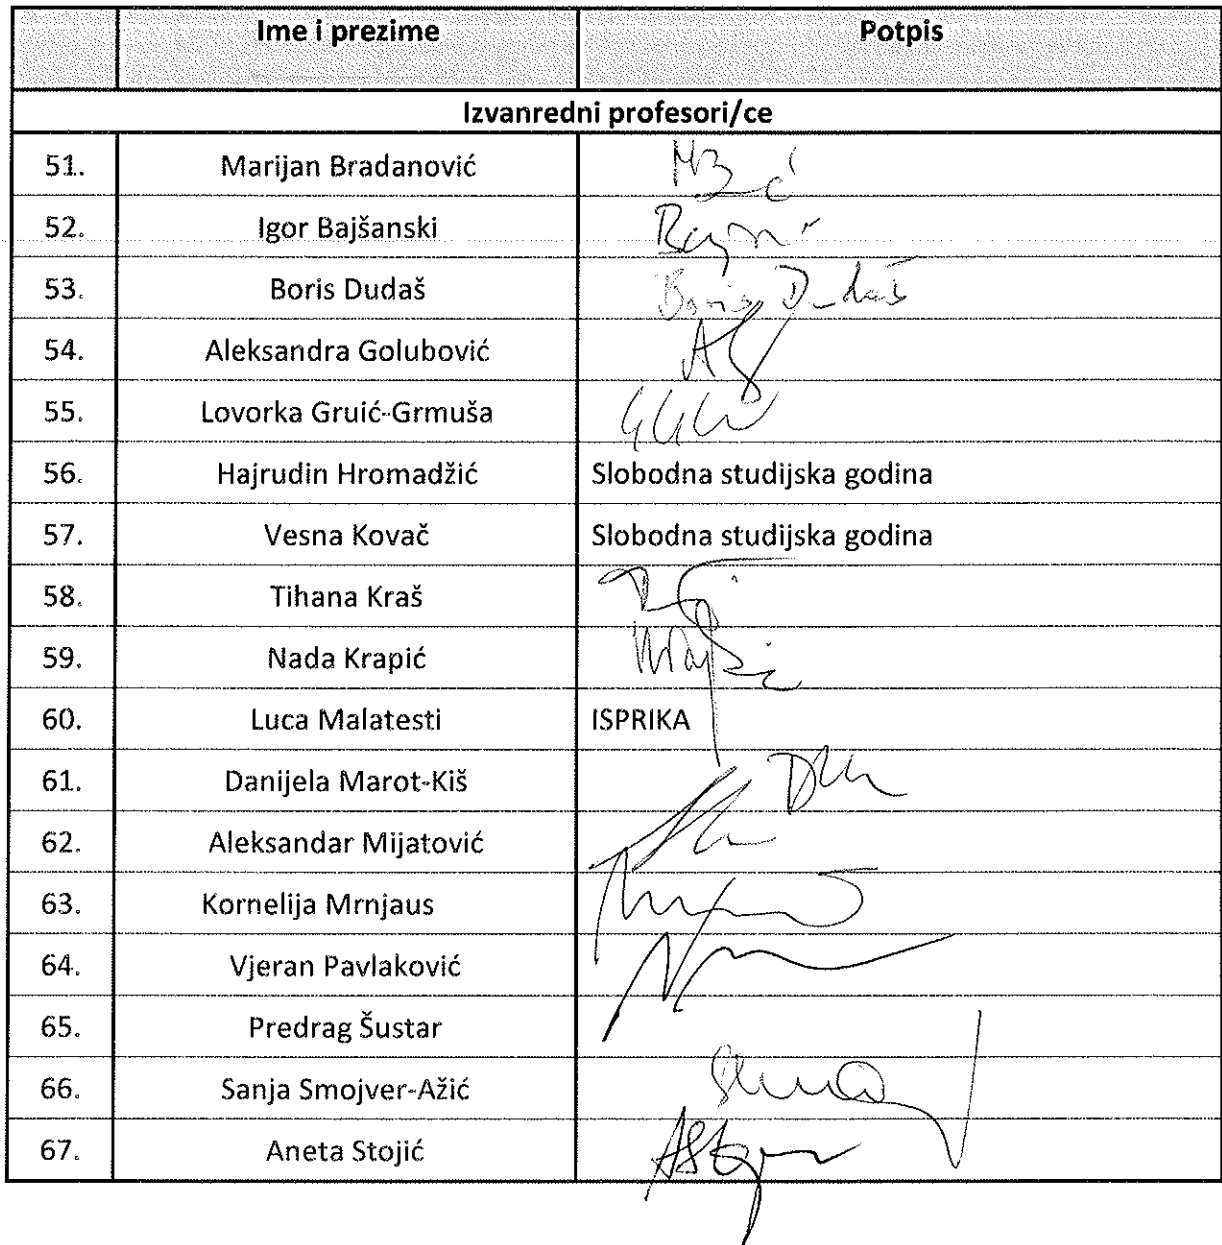 Ime i prezime Potpis
Izvanredni profesori/ce
51. Marijan Bradanović
52. Igor Bajšanski
53. Boris Dudaš Boris Dudaš
54. Aleksandra Golubović
55. Lovorka Gruić-Grmuša
56. Hajrudin Hromadžić Slobodna studijska godina
57. Vesna Kovač Slobodna studijska godina
58. Tihana Kraš
59. Nada Krapić
60. Luca Malatesti ISPRIKA
61. Danijela Marot-Kiš
62. Aleksandar Mijatović
63. Kornelija Mrnjaus
64. Vjeran Pavlaković
65. Predrag Šustar
66. Sanja Smojver-Ažić
67. Aneta Stojić